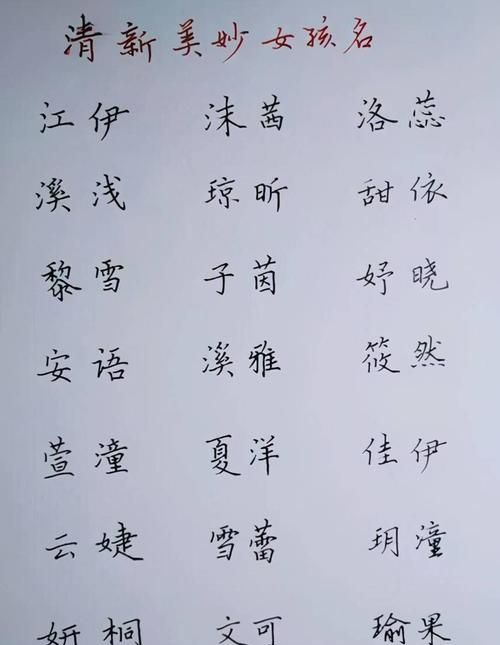 清新美妙女孩名
江伊 沫茜 洛蕊
溪浅 琼昕 甜依
黎雪 子茵 妤晓
安语 溪雅 筱然
萱潼 夏洋 佳伊
云婕 雪蕾 玥潼
妍桐 文可 瑜果